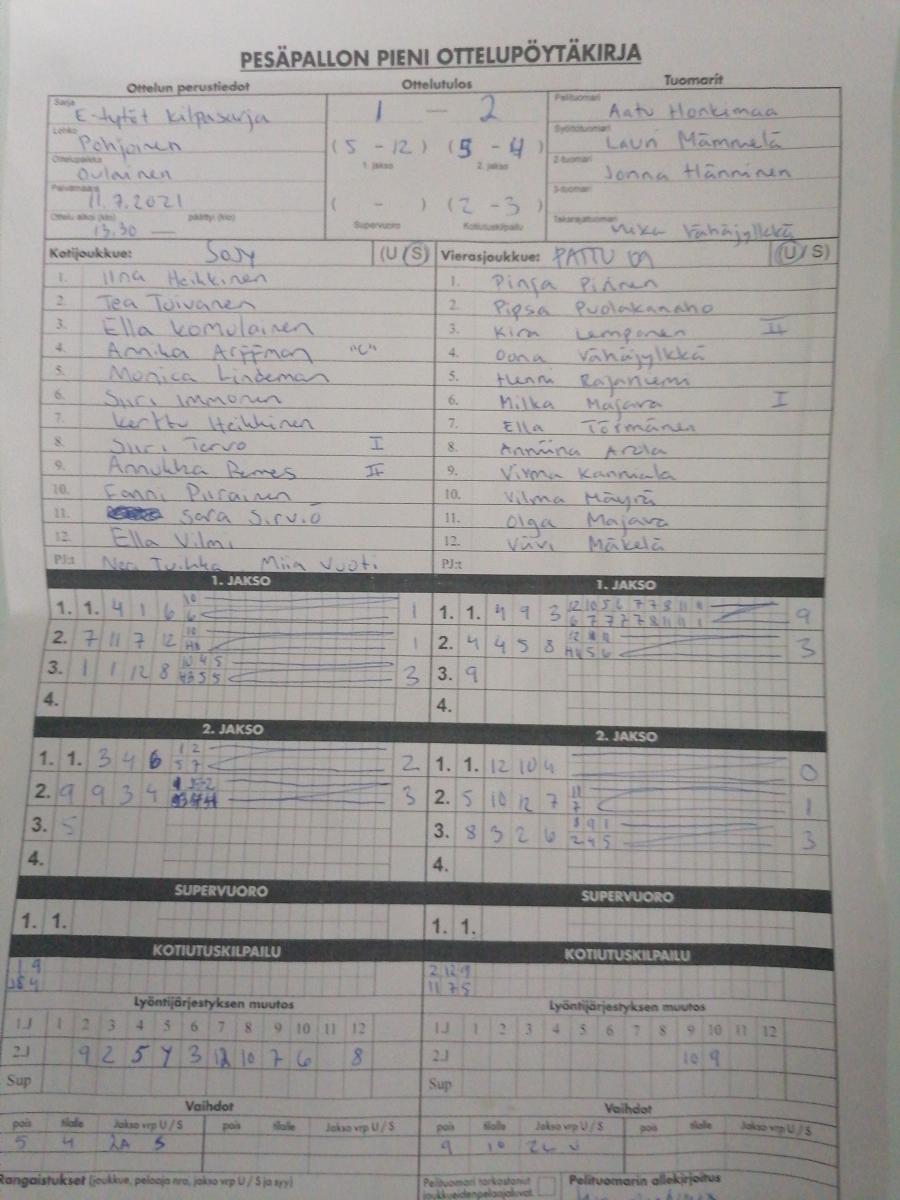 PESÄPALLON PIENI OTTELUPÖYTÄKIRJA
Ottelun perustiedot Ottelutulos Tuomarit
Sarja E-tytöt kilpasarja 1 – 2 Pelituomari Aatu Honkimaa
Lohko Pohjoinen (5 - 12) (5 - 4) Syöttötuomari Lauri Mämmelä
1. jakso 2. jakso
Ottelupaikka Oulainen 2-tuomari Jonna Hänninen
Päivämäärä 11.7.2021 ( - ) (2 - 3) 3-tuomari
Ottelu alkoi (klo) 13.30 päättyi (klo) — Supervuoro Kotiutuskilpailu Takarajatuomari Mika Vähäjylkkä
Kotijoukkue: SoJy (U/S) Vierasjoukkue: PATTU (U/S)
1. Iina Heikkinen 1. Pinja Pinnen
2. Tea Toivanen 2. Pipsa Puolakanaho
3. Ella Komulainen 3. Kira Lemponen II
4. Annika Arffman "C" 4. Oona Vähäjylkkä
5. Monica Lindeman 5. Henni Rajaniemi
6. Siiri Immonen 6. Milka Majava I
7. Kerttu Heikkinen 7. Ella Törmänen
8. Siiri Tervo I 8. Anniina Arola
9. Annukka Remes II 9. Virma Kanniala
10. Fanni Piirainen 10. Vilma Mäyrä
11. Sara Sirviö 11. Olga Majava
12. Ella Vilmi 12. Viivi Mäkelä
PJ:t Nea Tuihka, Miia Vuoti PJ:t
1. JAKSO 1. JAKSO
1. 1. 4 1 6 10 1 1. 1. 4 9 3 12 10 5 6 7 7 8 11 11 9
6 6 7 7 7 7 8 11 11 1
2. 7 11 7 12 10 1 2. 4 4 5 8 3
3. 1 1 12 8 10 4 5 3 3. 9
4. 4.
2. JAKSO 2. JAKSO
1. 1. 3 4 6 1 2 2 1. 1. 12 10 4 0
5 7
2. 9 9 3 4 3 2. 5 10 12 7 11 1
7
3. 5 3. 8 3 2 6 8 9 1 3
2 4 5
4. 4.
SUPERVUORO SUPERVUORO
1. 1. 1. 1.
KOTIUTUSKILPAILU KOTIUTUSKILPAILU
1 9 2 12 9
8 4 11 7 5
Lyöntijärjestyksen muutos Lyöntijärjestyksen muutos
1.J 1 2 3 4 5 6 7 8 9 10 11 12 1.J 1 2 3 4 5 6 7 8 9 10 11 12
2.J 9 2 5 4 3 12 10 7 6 8 2.J 10 9
Sup Sup
Vaihdot Vaihdot
pois tilalle Jakso vrp U / S pois tilalle Jakso vrp U / S pois tilalle Jakso vrp U / S pois tilalle Jakso vrp U / S
5 4 2A S 9 10 2L U
Rangaistukset (joukkue, pelaaja nro, jakso vrp U / S ja syy) Pelituomari tarkastanut joukkueidenpelaajaluvat Pelituomarin allekirjoitus